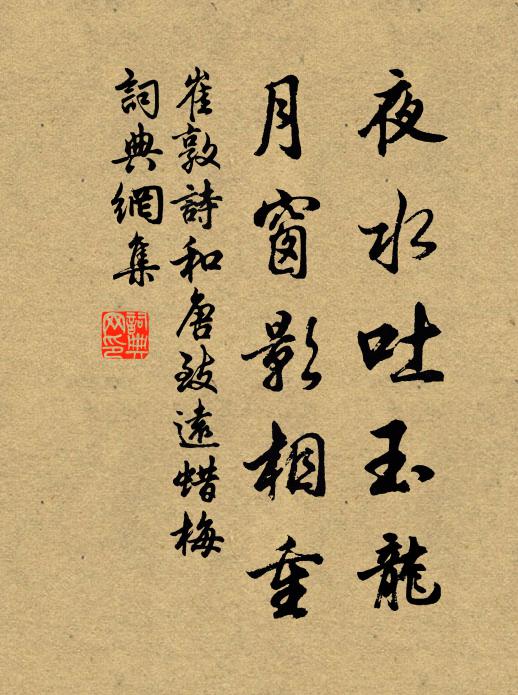 夜水吐玉龍
月窗影相重
崔敦詩和唐致遠蜡梅
詞典網集
詞典網印